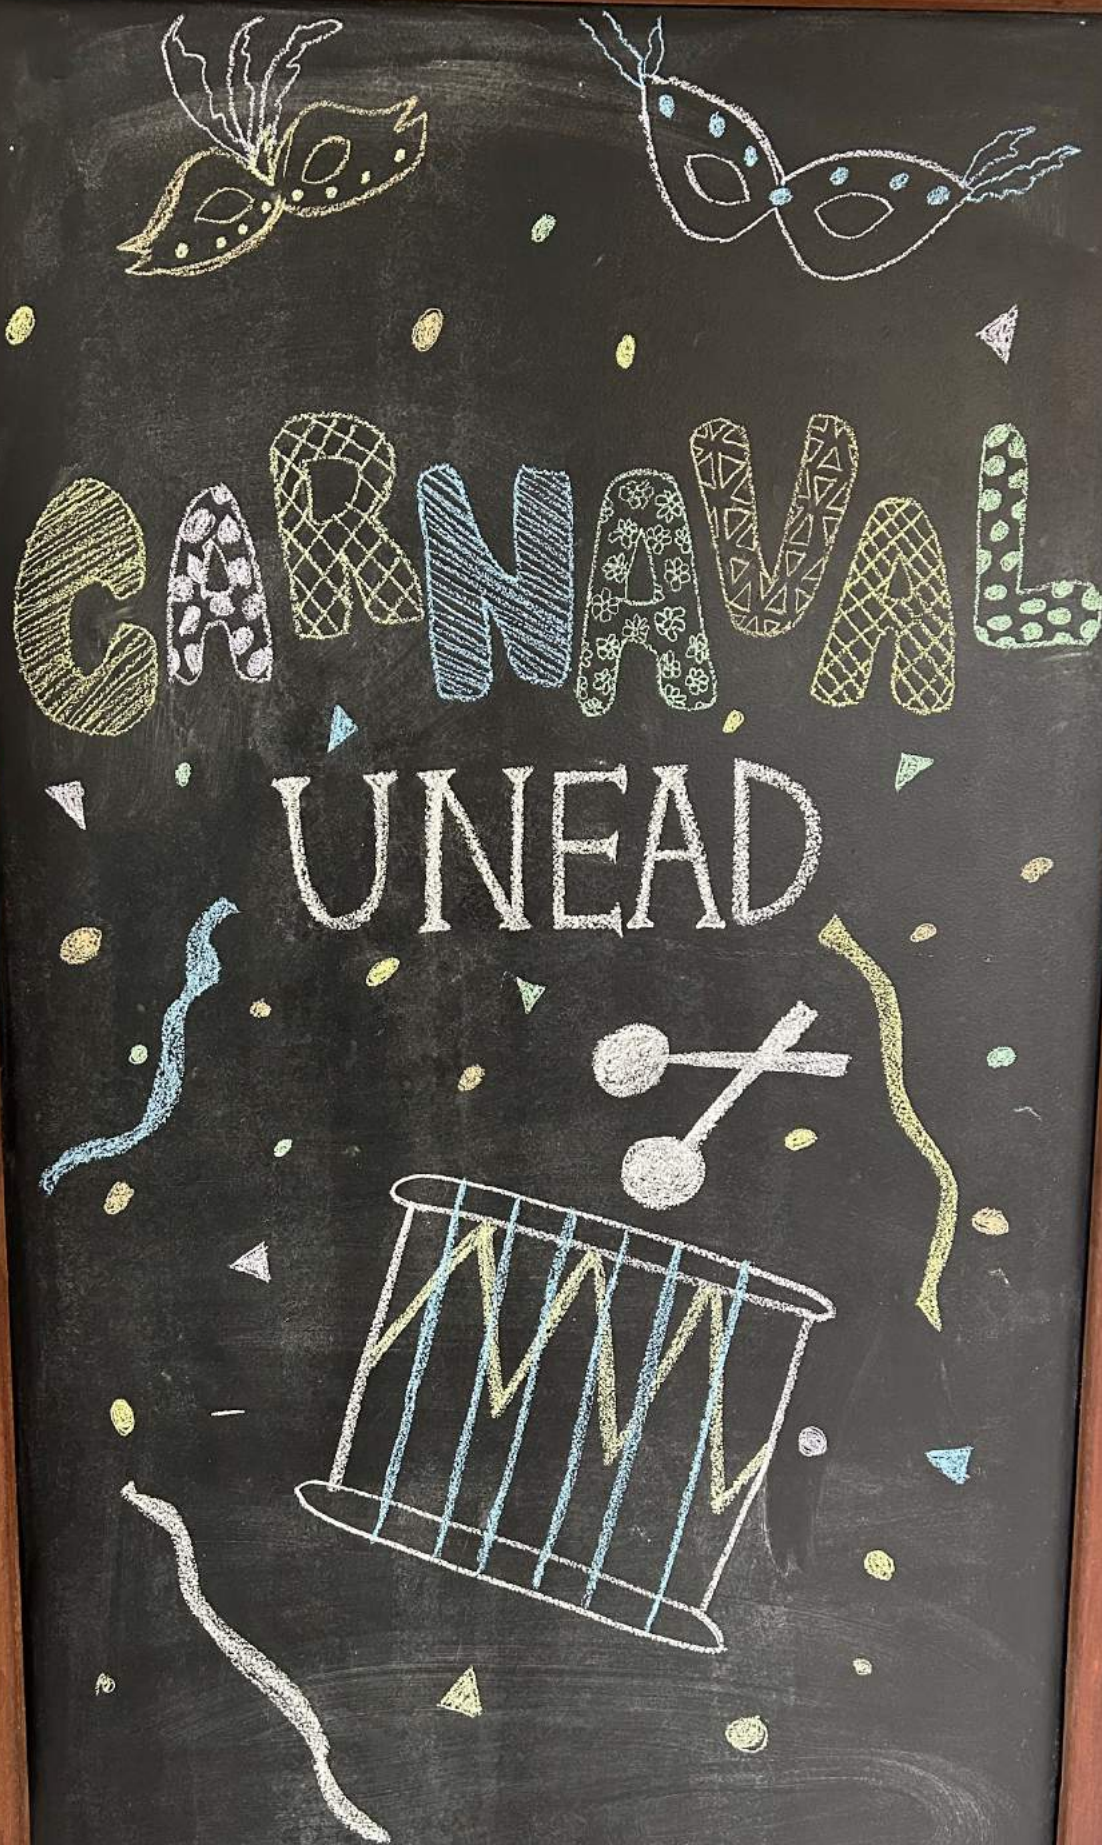 CARNAVAL
UNEAD